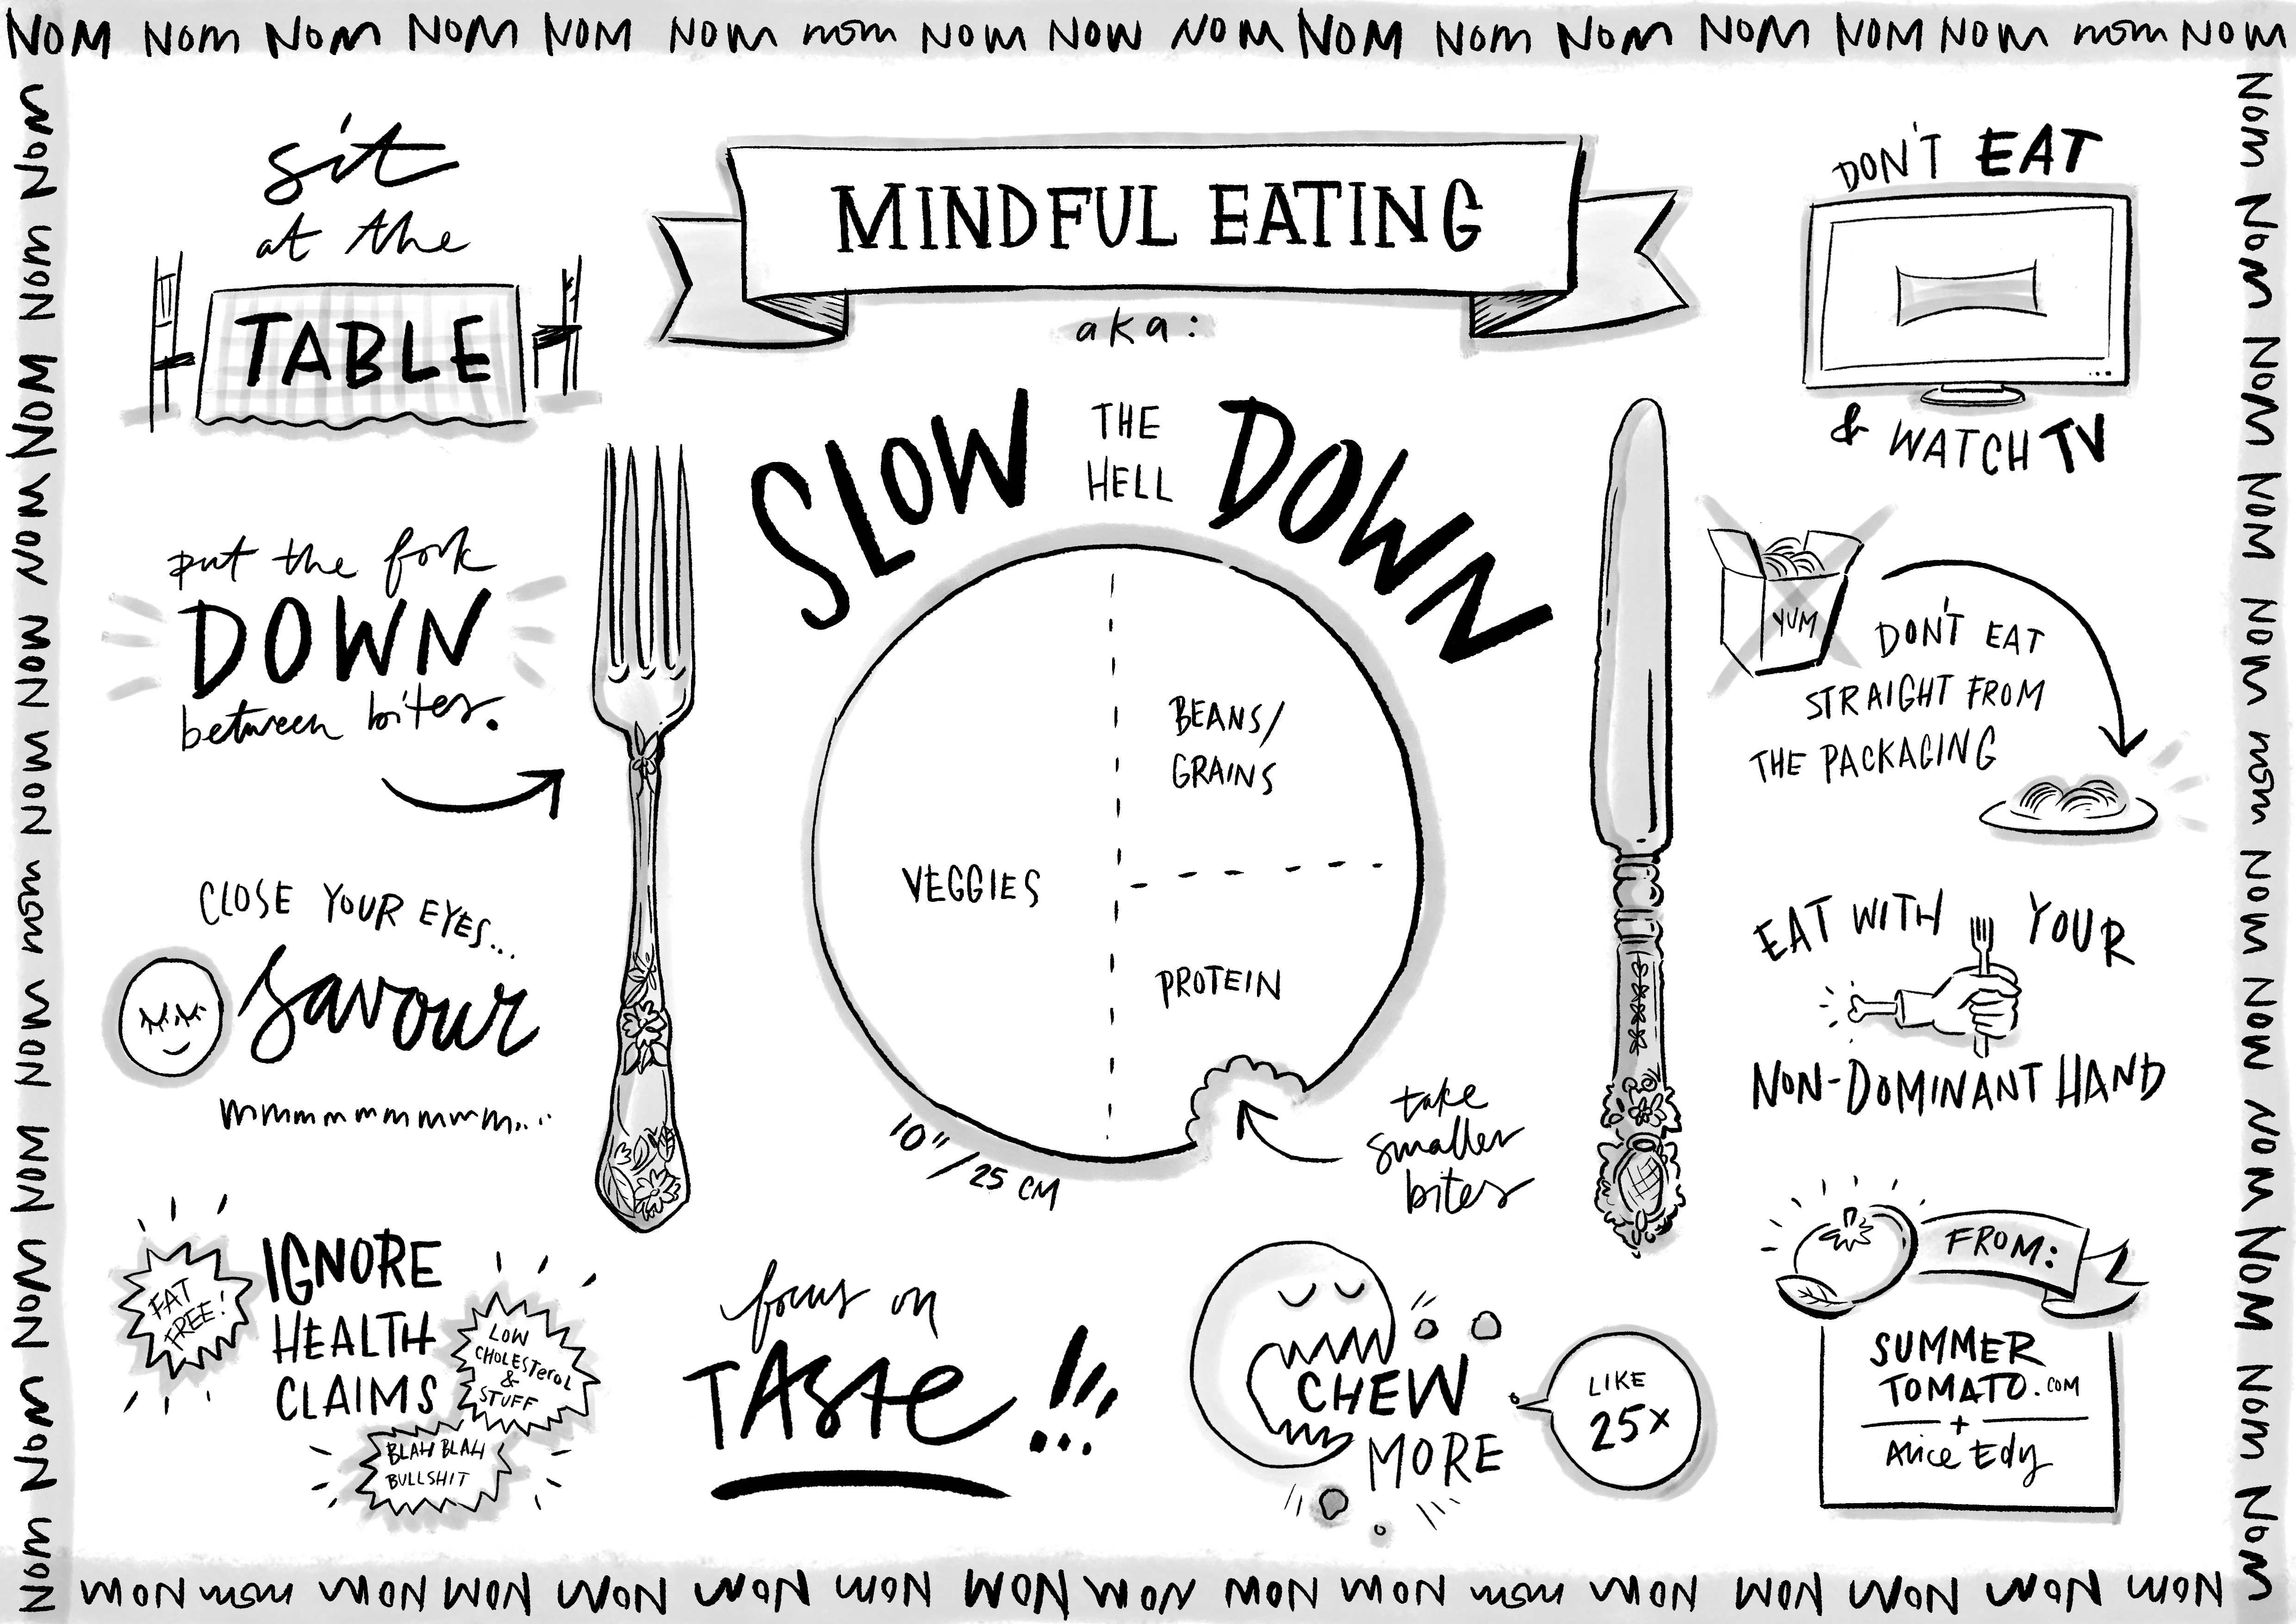 NOM NOM NOM NOM NOM NOM nom NOM NOM NOM NOM NOM NOM NOM NOM NOM nom NOM
sit
at the
TABLE
put the fork
DOWN
between bites.
CLOSE YOUR EYES...
savour
mmmmmmmmmm...
IGNORE
HEALTH
CLAIMS
FAT
FREE!
LOW
CHOLESTerol
&
STUFF
BLAH BLAH
BULLSHIT
MINDFUL EATING
aka:
SLOW THE HELL DOWN
VEGGIES
BEANS/
GRAINS
PROTEIN
10"/25 CM
take
smaller
bites
focus on
TASTE!!!
CHEW
MORE
LIKE
25x
DON'T EAT
& WATCH TV
YUM
DON'T EAT
STRAIGHT FROM
THE PACKAGING
EAT WITH YOUR
NON-DOMINANT HAND
FROM:
SUMMER
TOMATO.COM
+
Alice Edy
NOM NOM NOM NOM NOM NOM nom NOM NOM NOM NOM NOM
NOM NOM NOM NOM NOM nom NOM NOM NOM NOM NOM NOM
NOM nom NOM NOM NOM NOM NOM NOM NOM NOM NOM NOM nom NOM NOM NOM NOM NOM